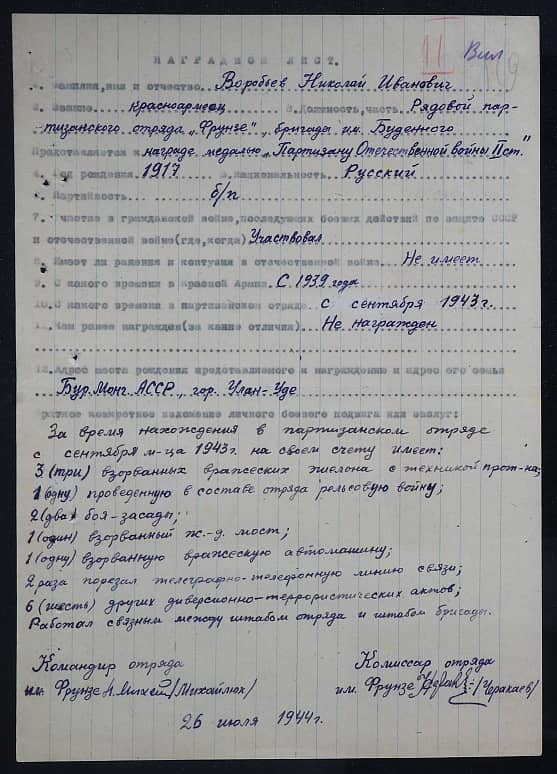 II Вил
НАГРАДНОЙ ЛИСТ.
1. Фамилия, имя и отчество Воробьев Николай Иванович
2. Звание красноармеец 3. Должность, часть Рядовой пар-
тизанского отряда „Фрунзе", бригады им. Буденного
Представляется к награде медалью „Партизану Отечественной войны II ст."
4. Год рождения 1917 5. Национальность Русский
6. Партийность б/п
7. Участие в гражданской войне, последующих боевых действий по защите СССР
и отечественной войне (где, когда) Участвовал
8. Имеет ли ранения и контузии в отечественной войне Не имеет
9. С какого времени в Красной Армии С 1939 года
10. С какого времени в партизанском отряде с сентября 1943 г.
11. Чем ранее награжден (за какие отличия) Не награжден
12. Адрес места рождения представляемого к награждению и адрес его семьи
Бур. Монг. АССР, гор. Улан-Уде
Краткое конкретное изложение личного боевого подвига или заслуг:
За время нахождения в партизанском отряде
с сентября м-ца 1943 г. на своем счету имеет:
3 (три) взорванных вражеских эшелона с техникой прот-ка;
1 (одну) проведенную в составе отряда рельсовую войну;
2 (два) боя-засады;
1 (один) взорванный ж.-д. мост;
1 (одну) взорванную вражескую автомашину;
2 раза порезал телеграфно-телефонную линию связи;
6 (шесть) других диверсионно-террористических актов;
Работал связным между штабом отряда и штабом бригады.
Командир отряда Комиссар отряда
им. Фрунзе /Михайлюк/ им. Фрунзе /Черакаев/
26 июля 1944 г.